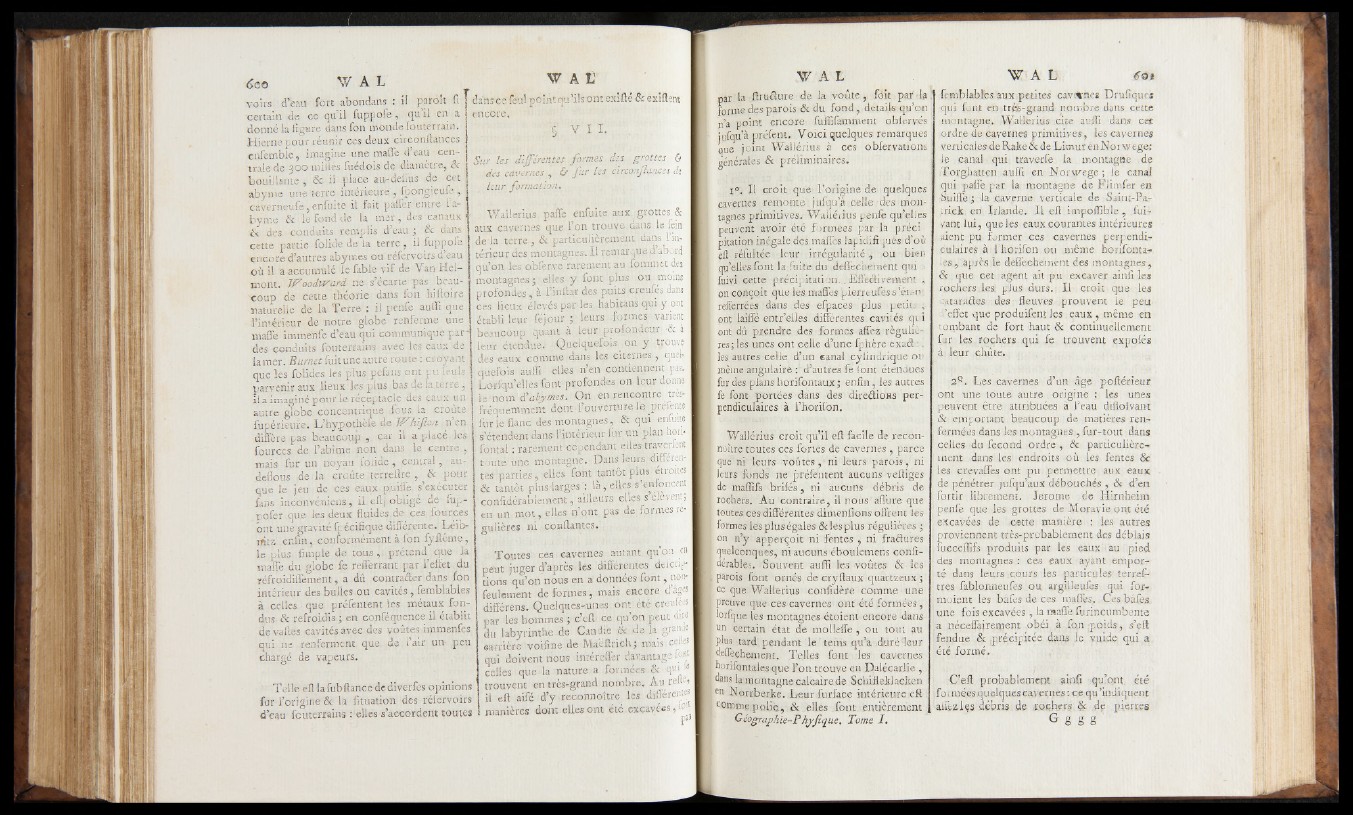 600 W A L
voirs d'eau fort abondans : il paroît si
certain de ce qu'il suppose, qu'il en a
donné la figure dans son monde souterrain.
Hierne pour réunir ces deux circonstances
ensemble, imagine une masse d'eau cen-
trale de 300 milles suédois de diamètre, &
bouillante, & il place au-dessus de cet
abyme une terre intérieure, spongieuse,
caverneuse, ensuite il fait passer entre l'a-
byme & le fond de la mer, des canaux
& des conduits remplis d'eau ; & dans
cette partie solide de la terre, il suppose
encore d'autres abymes ou réservoirs d'eau
où il a accumulé le sable vif de Van Hel-
mont. Woodward ne s'écarte pas beau-
coup de cette théorie dans son histoire
naturelle de la Terre ; il pense aussi que
l'intérieur de notre globe renferme une
masse immense d'eau qui communique par
des conduits souterrains avec les eaux de
la mer. Burnet suit une autre route : croyant
que les solides les plus pesans ont pu seuls
parvenir aux lieux les plus bas de la terre,
il a imaginé pour le réceptacle des eaux un
autre globe concentrique sous la croûte
supérieure. L'hypothèse de Whiston n'en
diffère pas beaucoup, car il a placé les
sources de l'abîme non dans le centre,
mais sur un noyau solide, central, au-
dessous de la croûte terrestre, & pour
que le jeu de ces eaux puisse s'exécuter
sans inconvéniens, il est obligé de sup-
poser que les deux fluides de ces sources
ont une gravité spécifique différente. Leib-
nitz enfin, conformément à son systême,
le plus simple de tous, prétend que la
masse du globe se resserrant par l'effet du
refroidissement, a dû contracter dans son
intérieur des bulles ou cavités, semblables
à celles que présentent les métaux fon-
dus & refroidis ; en conséquence il établit
de vastes cavités avec des voûtes immenses
qui ne renferment que de l'air un peu
chargé de vapeurs.
Telle est la substance de diverses opinions
sur l'origine & la situation des réservoirs
d'eau souterrains : elles s'accordent toutes
W A L
dans ce seul point qu'ils ont existé & existent
encore.
§ V I I.
Sur les différentes formes des grottes &
des cavernes, & sur les circonstances de
leur formation.
Wallerius passe ensuite aux grottes &
aux cavernes que l'on trouve dans le sein
de la terre, & particulièrement dans l'in-
térieur des montagnes. Il remarque d'abord
qu'on les observe rarement au sommet des
montagnes ; elles y sont plus ou moins
profondes, à l'instar des puits creusés dans
ces lieux élevés par les habitans qui y ont
établi leur séjour ; leurs formes varient
beaucoup quant à leur profondeur & à
leur étendue. Quelquefois on y trouve
des eaux comme dans les citernes, quel-
quefois aussi elles n'en contiennent pas.
Lorsqu'elles sont profondes on leur donne
le nom d'abymes. On en rencontre très-
fréquemment dont l'ouverture se présente
sur le flanc des montagnes, & qui ensuite
s'étendent dans l'intérieur sur un plan hori-
sontal : rarement cependant elles traversent
toute une montagne. Dans leurs différen-
tes parties, elles sont tantôt plus étroites
& tantôt plus larges : là, elles s'enfoncent
considérablement, ailleurs elles s'élèvent ;
en un mot, elles n'ont pas de formes ré-
gulières ni constantes.
Toutes ces cavernes autant qu'on en
peut juger d'après les différentes descrip-
tions qu'on nous en a données sont, non-
seulement de formes, mais encore d'âges
différens. Quelques-unes ont été creusées
par les hommes ; c'est ce qu'on peut dire
du labyrinthe de Candie & de la grande
carrière voisine de Maëstrich ; mais celles
qui doivent nous intéresser davantage sont
celles que la nature a formées & qui se
trouvent en très-grand nombre. Au reste,
il est aisé d'y reconnoître les différentes
manières dont elles ont été excavées, soit
par
W A L
par la structure de la voûte, soit par la
forme des parois & du fond, détails qu'on
n'a point encore suffisamment observés
jusqu'à présent. Voici quelques remarques
que joint Wallérius à ces observations
générales & préliminaires.
1°. Il croit que l'origine de quelques
cavernes remonte jusqu'à celle des mon-
tagnes primitives. Wallérius pense qu'elles
peuvent avoir été formées par la préci-
pitation inégale des masses lapidifiques d'où
est résultée leur irrégularité, ou bien
qu'elles sont la suite du dessèchement qui a
suivi cette précipitation. Effectivement,
on conçoit que les masses pierreuses s'étant
resserrées dans des espaces plus petits,
ont laissé entr'elles différentes cavités qui
ont dû prendre des formes assez réguliè-
res ; les unes ont celle d'une sphère exacte,
les autres celle d'un canal cylindrique ou
même angulaire : d'autres se sont étendues
sur des plans horisontaux ; enfin, les autres
se sont portées dans des directions per-
pendiculaires à l'horison.
Wallérius croit qu'il est facile de recon-
noître toutes ces sortes de cavernes, parce
que ni leurs voûtes, ni leurs parois, ni
leurs fonds ne présentent aucuns vestiges
de massifs brisés, ni aucuns débris de
rochers. Au contraire, il nous assure que
toutes ces différentes dimensions offrent les
formes les plus égales & les plus régulières ;
on n'y apperçoit ni fentes, ni fractures
quelconques, ni aucuns éboulemens consi-
dérables. Souvent aussi les voûtes & les
parois sont ornés de crystaux quartzeux ;
ce que Wallerius considère comme une
preuve que ces cavernes ont été formées,
lorsque les montagnes étoient encore dans
un certain état de mollesse, ou tout au
plus tard pendant le tems qu'a duré leur
dessèchement. Telles sont les cavernes
horisontales que l'on trouve en Dalécarlie,
dans la montagne calcaire de Schisseklacken
en Norrberke. Leur surface intérieure est
comme polie, & elles sont entièrement
Géographie-Physique. Tome I.
W A L 601
semblables aux petites cavernes Drusiques
qui sont en très-grand nombre dans cette
montagne. Wallerius cite aussi dans cet
ordre de cavernes primitives, les cavernes
verticales de Rake & de Limur en Norwege:
le canal qui traverse la montagne de
Torghatten aussi en Norwege ; le canal
qui passe par la montagne de Flimser en
Suisse ; la caverne verticale de Saint-Pa-
trick en Irlande. Il est impossible, sui-
vant lui, que les eaux courantes intérieures
aient pu former ces cavernes perpendi-
culaires à l'horison ou même horisonta-
les, après le dessèchement des montagnes,
& que cet agent ait pu excaver ainsi les
rochers les plus durs. Il croit que les
cataractes des fleuves prouvent le peu
d'effet que produisent les eaux, même en
tombant de fort haut & continuellement
sur les rochers qui se trouvent exposés
à leur chûte.
2°. Les cavernes d'un âge postérieur
ont une toute autre origine : les unes
peuvent être attribuées à l'eau dissolvant
& emportant beaucoup de matières ren-
fermées dans les montagnes, sur-tout dans
celles du second ordre, & particulière-
ment dans les endroits où les fentes &
les crevasses ont pu permettre aux eaux
de pénétrer jusqu'aux débouchés, & d'en
sortir librement. Jerome de Hirnheim
pense que les grottes de Moravie ont été
excavées de cette manière : les autres
proviennent très-probablement des déblais
successifs produits par les eaux au pied
des montagnes : ces eaux ayant empor-
té dans leurs cours les particules terres-
tres sablonneuses ou argilleuses qui for-
moient les bases de ces masses. Ces bases
une fois excavées, la masse surincumbente
a nécessairement obéi à son poids, s'est
fendue & précipitée dans le vuide qui a
été formé.
C'est probablement ainsi qu'ont été
formées quelques cavernes : ce qu'indiquent
assez les débris de rochers & de pierres
G g g g